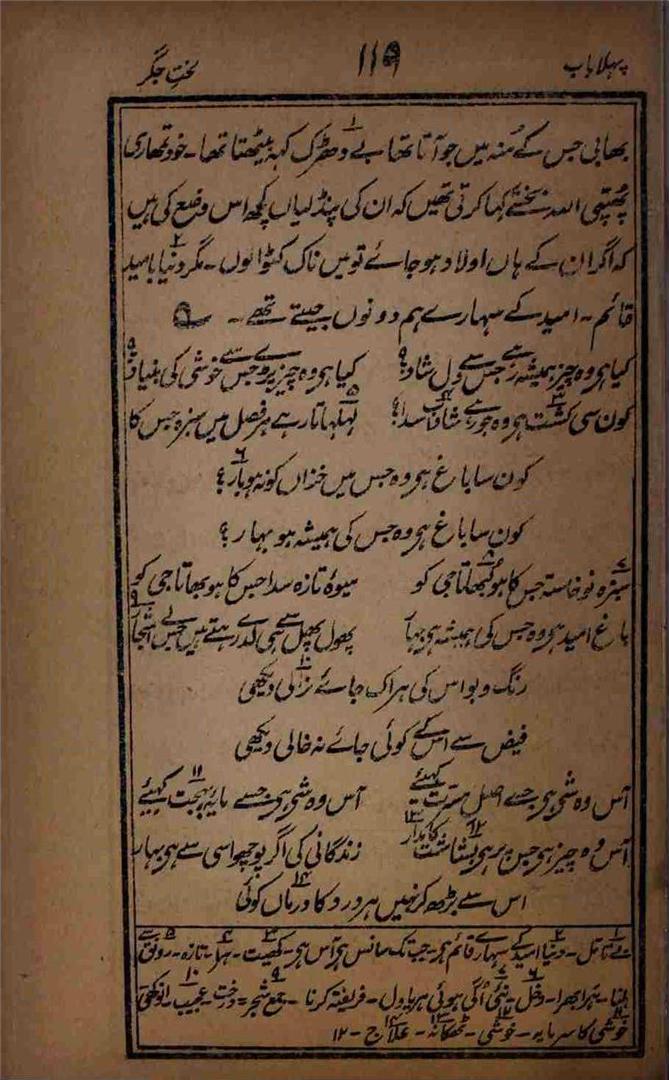 پہلا باب ۱۱۹ لختِ جگر
بھابی جس کے مُنہ میں جو آتا تھا بے دھڑک کہہ بیٹھتا تھا۔ خود تمھاری
پُھپّی اللہ بخشے کہا کرتی تھیں کہ ان کی پنڈلیاں کچھ اس وضع کی ہیں
کہ اگر ان کے ہاں اولاد ہو جائے تو میں ناک کٹوا لوں۔ مگر دنیا بامید
قائم۔ امید کے سہارے ہم دونوں جیتے تھے۔ ؎
کیا ہی وہ چیز ہمیشہ رہے جس سے دل شاد؟ کیا ہی وہ چیز پڑے جس سے خوشی کی بنیاد؟
کون سی کشت ہی وہ جو رہے شاداب سدا؟ لہلہاتا رہے ہر فصل میں سبزہ جس کا
کون سا باغ ہی وہ جس میں خزاں کو نہ ہو بار؟
کون سا باغ ہی وہ جس کی ہمیشہ ہو بہار؟
سبزہ نوخاستہ جس کا ہو لُبھاتا جی کو میوۂ تازہ سدا جس کا ہو بھاتا جی کو
باغ امید ہی وہ جس کی ہمیشہ ہی بہار پھول پھل سے ہی لدے رہتے ہیں جس کے اشجار
رنگ و بو اس کی ہر اک جائے نرالی دیکھی
فیض سے اس کے کوئی جائے نہ خالی دیکھی
آس وہ شی ہی جسے اصل مسرت کہیئے آس وہ شی ہی جسے مایۂ بہجت کہیئے
آس وہ چیز ہی جس پر ہی بشاشت کا مدار زندگانی کی اگر پوچھو اسی سے ہی بہار
اس سے بڑھ کر نہیں ہر درد کا درماں کوئی
۱ بے تامّل۔ ۲ دنیا امید کے سہارے قائم ہی۔ جب تک سانس ہی آس ہی۔ ۳ کھیت۔ ۴ ہرا۔ تازہ۔ ۵ رونق سے
ہلنا۔ ہرا بھرا۔ ۶ دخل۔ ۷ نئی اُگی ہوئی ہریاول۔ ۸ فریفتہ کرنا۔ ۹ جمع شجر = درخت۔ ۱۰ عجیب۔ انوکھی
۱۱ خوشی کا سرمایہ۔ ۱۲ خوشی۔ ۱۳ ٹھکانہ۔ ۱۴ علاج۔ ۱۲